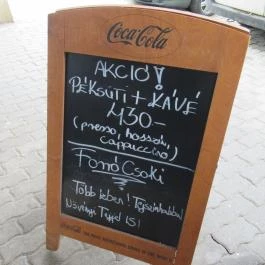 Coca-Cola
AKCIÓ!
PÉKSÜTI + KÁVÉ
430-
(presso, hosszú,
cappuccino)
Forró Csoki
Több ízben! Tejszínhabbal
Növényi Tejjel IS!
Coca-Cola